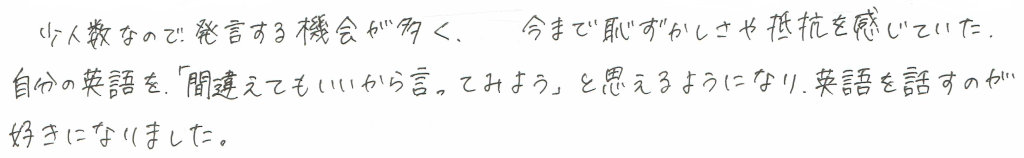 少人数なので発言する機会が多く、 今まで恥ずかしさや抵抗を感じていた、
自分の英語を、「間違えてもいいから言ってみよう」と思えるようになり、英語を話すのが
好きになりました。